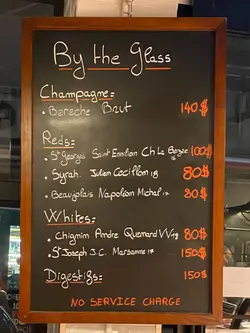 By the Glass
Champagne:
• Bereche Brut 140$
Reds:
• St Georges Saint Emilion Ch La 18 100$
• Syrah. Julien Cecillon 18 80$
• Beaujolais Napoléon Michel 18 80$
Whites:
• Chignin Andre Quenard VV 19 80$
• St Joseph J.C. Marsanne 18 150$
Digestifs: 150$
NO SERVICE CHARGE